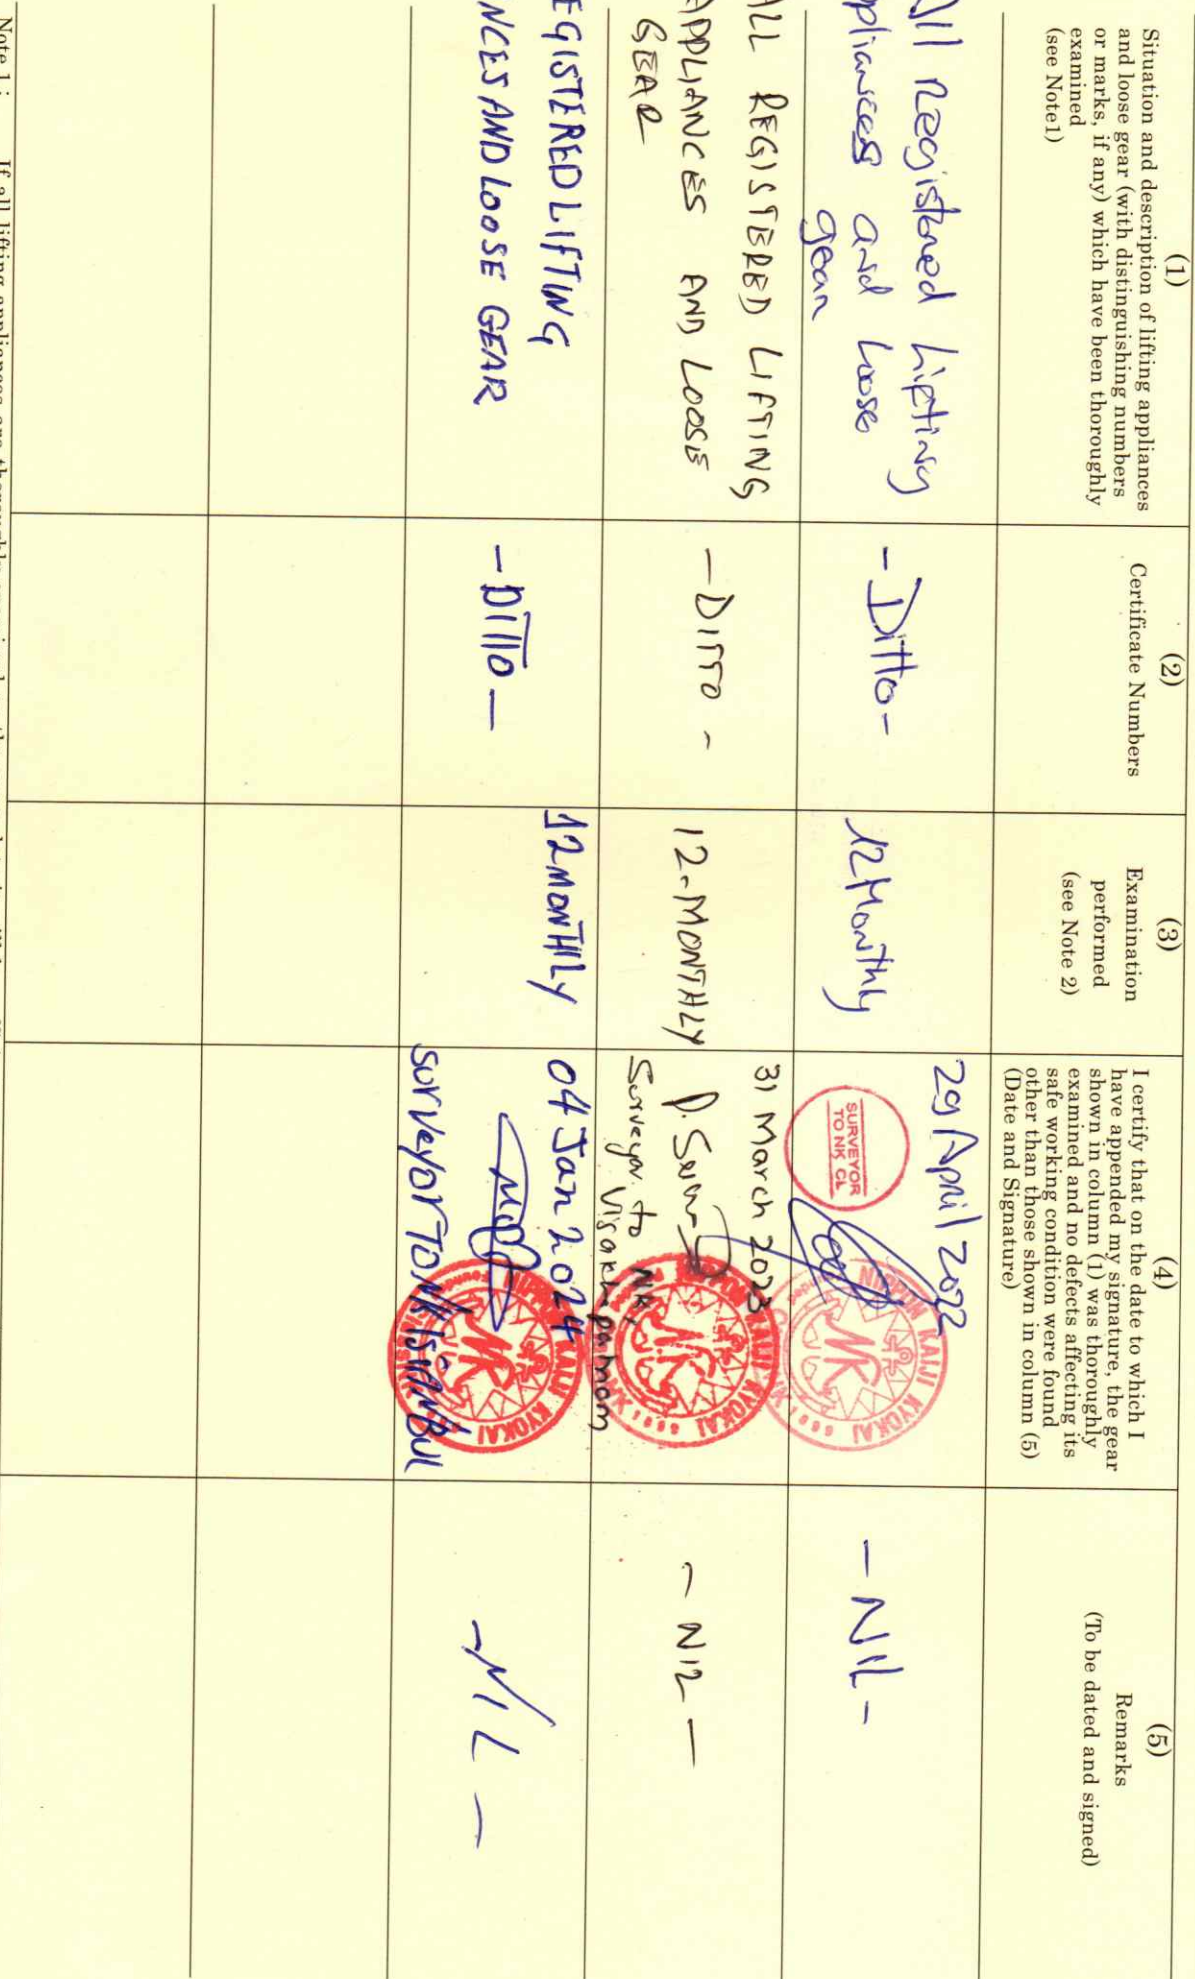 (1)
Situation and description of lifting appliances
and loose gear (with distinguishing numbers
or marks, if any) which have been thoroughly
examined
(see Note1)
(2)
Certificate Numbers
(3)
Examination
performed
(see Note 2)
(4)
I certify that on the date to which I
have appended my signature, the gear
shown in column (1) was thoroughly
examined and no defects affecting its
safe working condition were found
other than those shown in column (5)
(Date and Signature)
(5)
Remarks
(To be dated and signed)
All Registered Lifting
ppliances and Loose
gear
-Ditto-
12 Monthly
29 April 2022
SURVEYOR
TO NK CL
NIPPON KAIJI KYOKAI
NK
-NIL-
ALL REGISTERED LIFTING
APPLIANCES AND LOOSE
GEAR
-DITTO-
12-MONTHLY
31 March 2023
Surveyor to NK,
Visakhapatnam
NIPPON KAIJI KYOKAI
NK
-NIL-
EGISTERED LIFTING
NCES AND LOOSE GEAR
-DITTO-
12 MONTHLY
04 Jan 2024
SURVEYOR TO NK ISTANBUL
NIPPON KAIJI KYOKAI
NK
-NIL-